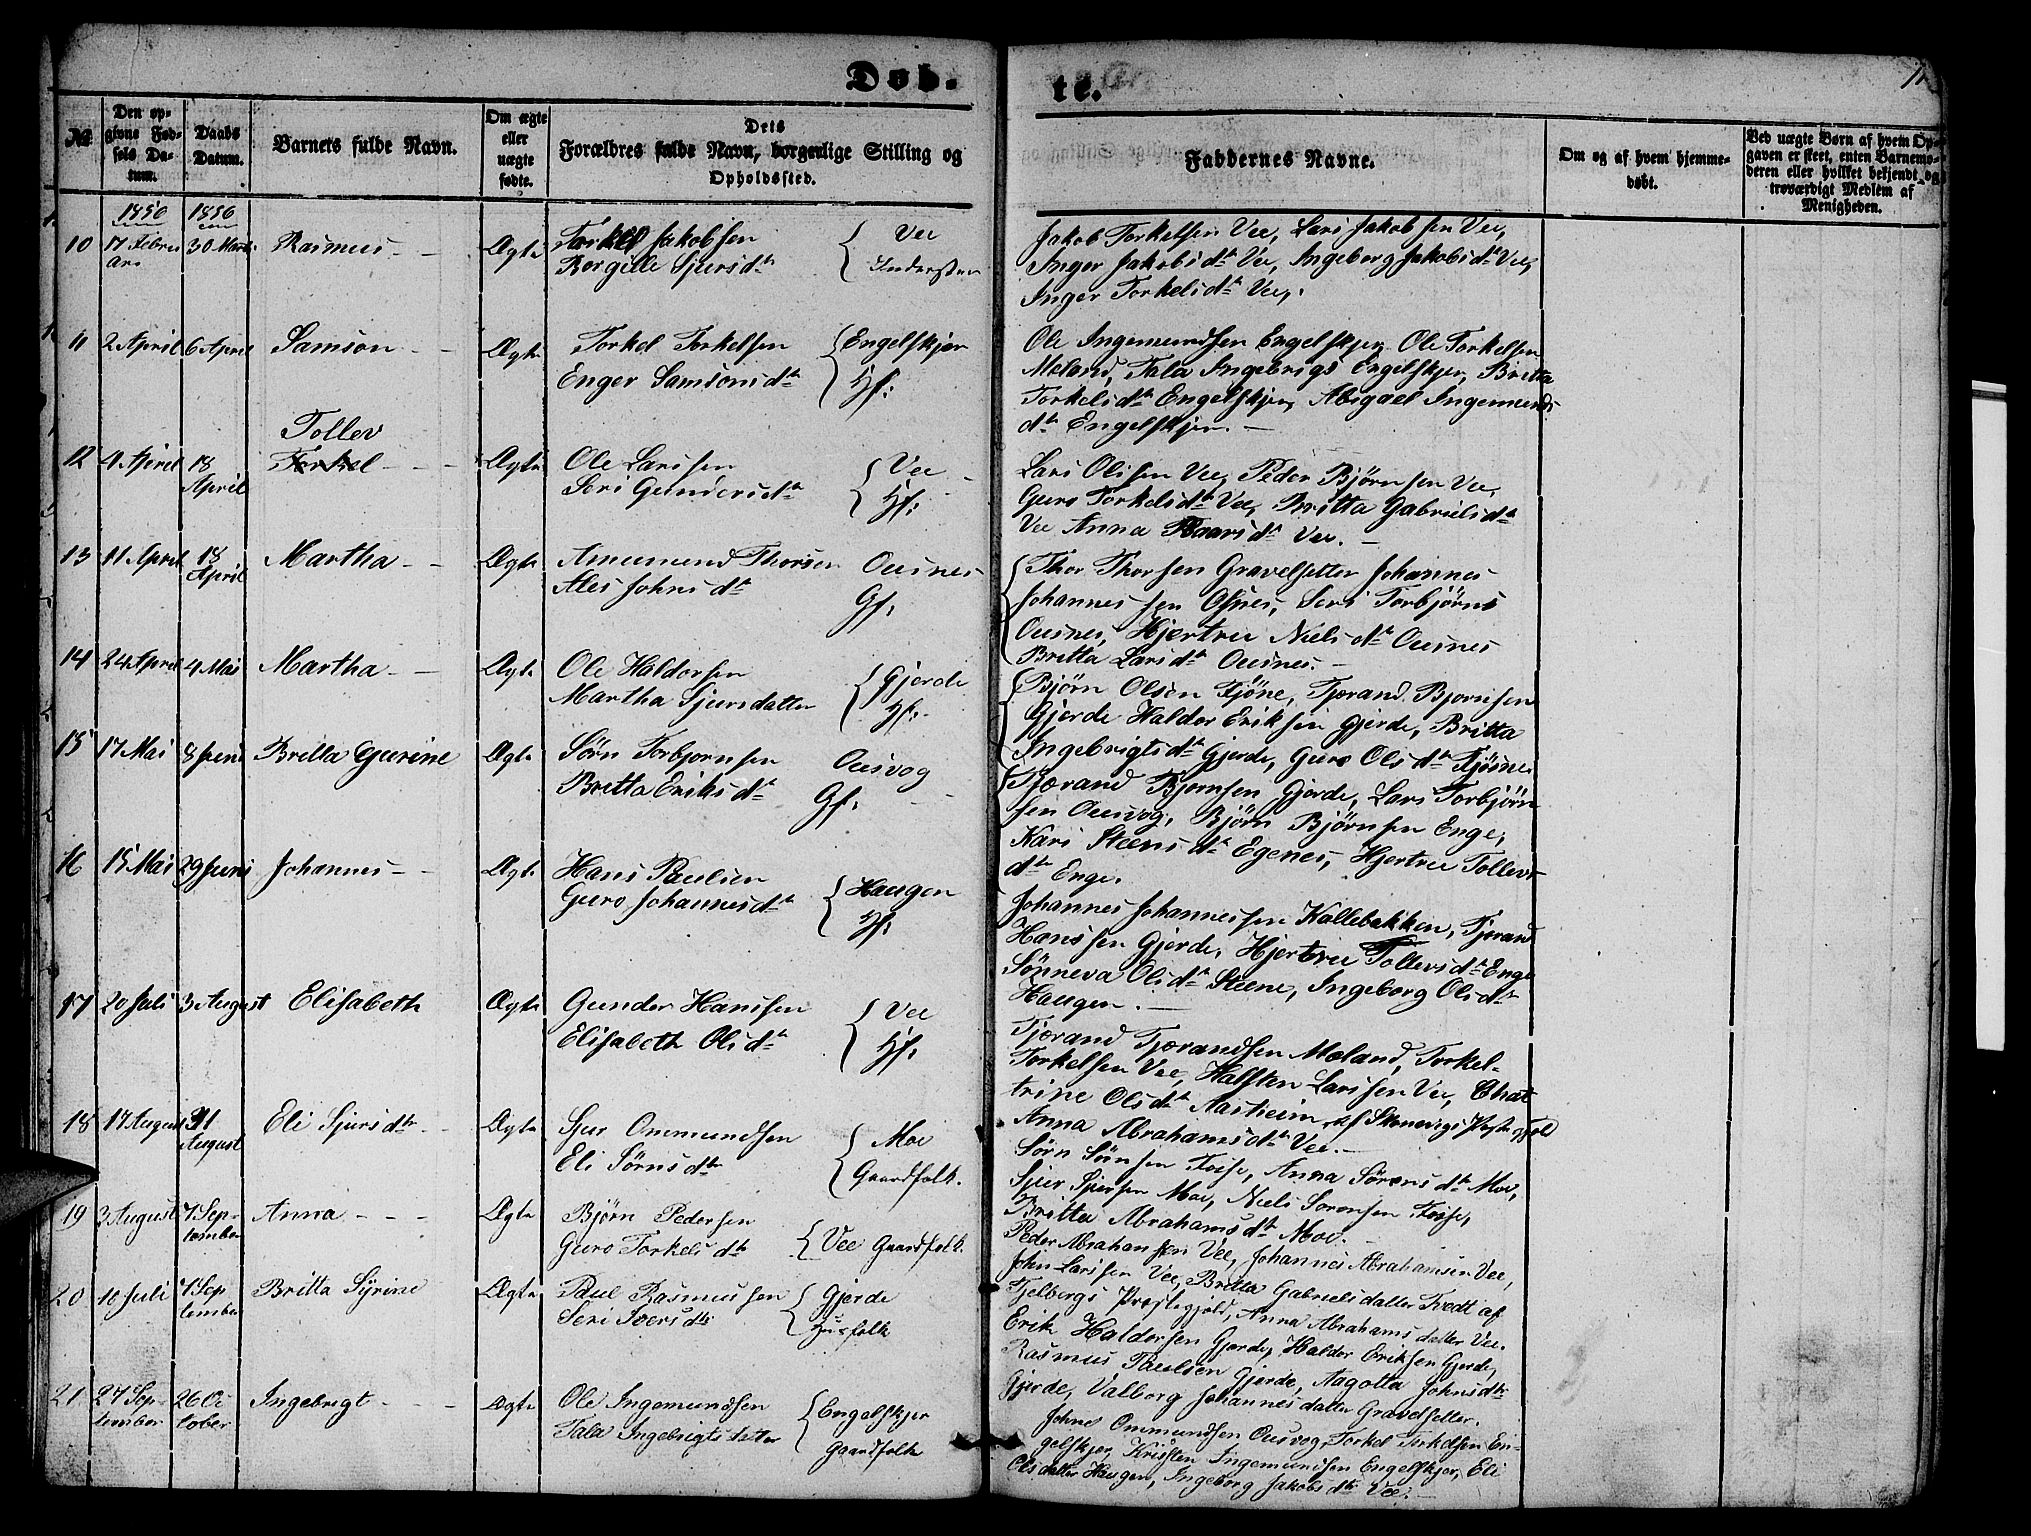 Døb-
te.
№
Den op-
givne Fød-
sels Da-
tum.
Daabs
Datum.
Barnets fulde Navn.
Om ægte
eller
uægte
fødte.
Dets
Forældres fulde Navn, borgerlige Stilling og
Opholdssted.
Faddernes Navne.
Om og af hvem hjemme-
døbt.
Ved uægte Børn af hvem Op-
gaven er skeet, enten Barnemo-
deren eller hvilket bekjendt og
troværdigt Medlem af
Menigheden.
1856 1856
10 17 Febru
ari 30 Marts Rasmus Ægte Torkel Jakobsen Vee
Borgille Sjursdtr Inderster
Jakob Torkelsen Vee, Lars Jakobsen Vee,
Inger Jakobsdtr Vee, Ingeborg Jakobsdtr Vee,
Inger Torkelsdtr Vee.
11 2 April 6 April Samson Ægte Torkel Torkelsen Engelskjer
Enger Samsonsdtr Hf:
Ole Ingemundsen Engelskjer, Ole Torkelsen
Moland, Tala Ingebrigs Engelskjer, Britta
Torkelsdtr Engelskjer, Abigael Ingemunds-
dtr Engelskjer.
Tollev
12 4 April 18
April Torkel Ægte Ole Larssen Vee
Seri Gundersdtr Hf:
Lars Olssen Vee, Peder Bjørnsen Vee,
Guro Torkelsdtr Vee, Britta Gabrielsdtr
Vee Anna Roarsdtr Vee.
13 11 April 18
April Martha Ægte Amumund Thorsen Ousnes
Ales Johnsdtr Gf:
Thor Thorsen Gravelsetter Johannes
Johannessen Osnes, Seri Torbjørns
Ousnes, Hjertru Nielsdtr Ousnes
Britta Larsdtr Ousnes.
14 24 April 4 Mai Martha Ægte Ole Haldorsen Gjerde
Martha Sjursdatter Hf:
Bjørn Olsen Fjøne, Tjerand Bjornsen
Gjerde Haldor Eriksen Gjerde, Britta
Ingebrigtsdtr Gjerde, Guro Olsdtr Fjøsne
15 17 Mai 8 Juni Britta Gurine Ægte Sørn Torbjornsen Ousvog
Britta Eriksdtr Gf:
Tjerand Bjornsen Gjerde, Lars Torbjørn-
sen Ousvog, Bjørn Bjørnsen Enge,
Kari Steensdtr Egenes, Hjertru Tollevs-
dtr Enge.
16 15 Mai 29 Juni Johannes Ægte Hans Paulsen Haugen
Guro Johannesdtr Hf:
Johannes Johannessen Kallebakken, Tjerand
Hanssen Gjerde, Hjertru Tollevsdtr Enge
Sønneva Olsdtr Steene, Ingeborg Olsdtr
Haugen.
17 20 Juli 3 August Elisabeth Ægte Gunder Hanssen Vee
Elisabeth Olsdtr Hf:
Tjerand Tjerandsen Moland, Torkel-
Torkelsen Vee, Halsten Larssen Vee, Chat
trine Olsdtr Aastieim af Skonevigs Præstegjeld
Anna Abrahamsdtr Vee.
18 17 August 31
August Eli Sjursdtr Ægte Sjur Ommundsen Moe
Eli Sørnsdtr Gaardfolk.
Sørn Sønsen Fosse, Anna Sørensdtr Moe,
Sjur Sjursen Moe, Niels Sorensen Fosse,
Britta Abrahamsdtr Moe.
19 3 August 7 Sep-
tember Anna Ægte Bjørn Pedersen
Guro Torkelsdtr Vee Gaardfolk.
Peder Abrahamsen Vee, Johannes Abrahamsen Vee,
John Larssen Vee, Britta Gabrielsdatter Tvedt af
Fjelbergs Præstegjeld, Anna Abrahamsdatter Vee.
20 10 Juli 7 Sep
tember Britta Syrine Ægte Paul Rasmussen Gjerde
Seri Iversdtr Husfolk
Erik Haldorsen Gjerde, Haldor Eriksen Gjerde,
Rasmus Paulsen Gjerde, Aagotta Johnsdtr
Gjerde, Valborg Johannesdatter Gravelsetter.
21 27 Sep-
tember 26 Oc
tober Ingebrigt Ægte Ole Ingemundsen Engelskjer
Tala Ingebrigtsdatter Gaardfolk
Johne Ommundsen Ousvog, Torkel Torkelsen En-
gelskjer, Kristen Ingemundsen Engelskjer, Eli
Olsdatter Haugen, Ingeborg Jakobsdtr Vee.